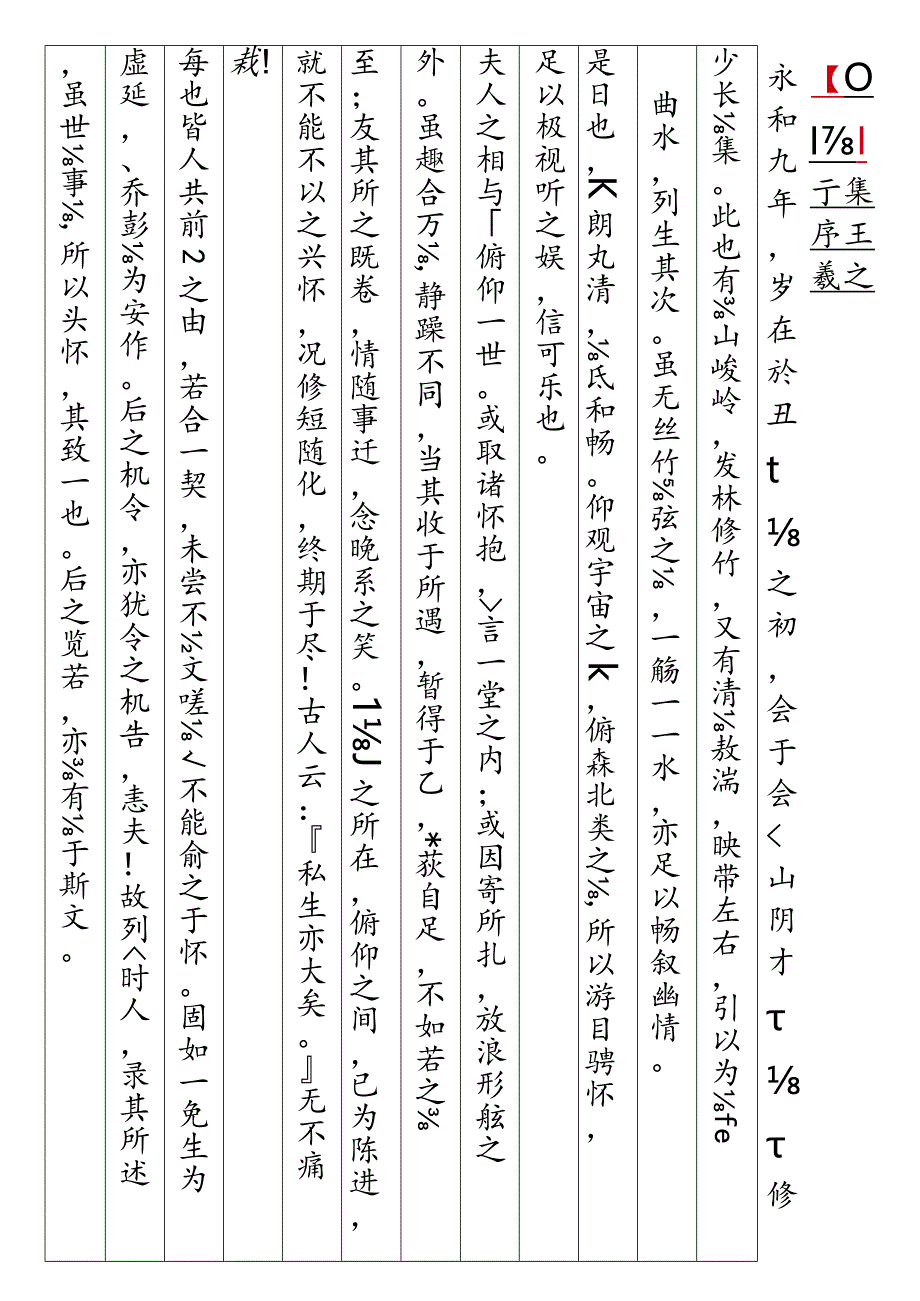 【O
I⅞I
亍集
序王
羲之
永和九年，岁在於丑t⅛之初，会于会<山阴才τ⅛τ修
少长⅛集。此也有⅜山峻岭，发林修竹，又有清⅛敖湍，映带左右，引以为⅛fe
曲水，列生其次。虽无丝竹⅝弦之⅛，一觞一一水，亦足以畅叙幽情。
是日也，K朗丸清，⅛氏和畅。仰观宇宙之k，俯森北类之⅛,所以游目骋怀，
足以极视听之娱，信可乐也。
夫人之相与「俯仰一世。或取诸怀抱，>言一堂之内；或因寄所扎，放浪形舷之
外。虽趣合万⅛,静躁不同，当其收于所遇，暂得于乙，*荻自足，不如若之⅜
至；友其所之既卷，情随事迁，念晚系之笑。1⅛J之所在，俯仰之间，已为陈进，
就不能不以之兴怀，况修短随化，终期于尽！古人云：『私生亦大矣。』无不痛
栽!
每也皆人共前2之由，若合一契，未尝不½文嗟⅛<不能俞之于怀。固如一免生为
虚延，、乔彭⅛为安作。后之机令，亦犹令之机告，恚夫！故列<时人，录其所述
，虽世⅛事⅛,所以头怀，其致一也。后之览若，亦⅜有⅛于斯文。